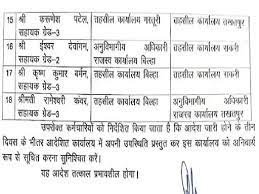 15 श्री कमलेश पटेल, तहसील कार्यालय मस्तूरी तहसील कार्यालय तखतपुर
सहायक ग्रेड-3
16 श्री ईश्वर देवांगन, अनुविभागीय अधिकारी तहसील कार्यालय सकरी
सहायक ग्रेड-2 राजस्व कार्यालय बिल्हा
17 श्री कृष्ण कुमार वर्मन, तहसील कार्यालय बिल्हा अनुविभागीय अधिकारी
सहायक ग्रेड-3 राजस्व कार्यालय बिल्हा
18 श्रीमती रामेश्वरी कंवर, तहसील कार्यालय बिल्हा तहसील कार्यालय सकरी
सहायक ग्रेड-3
उपरोक्त कर्मचारियों को निर्देशित किया जाता है कि आदेश जारी होने के तीन
दिवस के भीतर आदेशित कार्यालय में अपनी उपस्थिति प्रस्तुत कर इस कार्यालय को अनिवार्य
रूप से सूचित करना सुनिश्चित करे।
यह आदेश तत्काल प्रभावशील होगा।